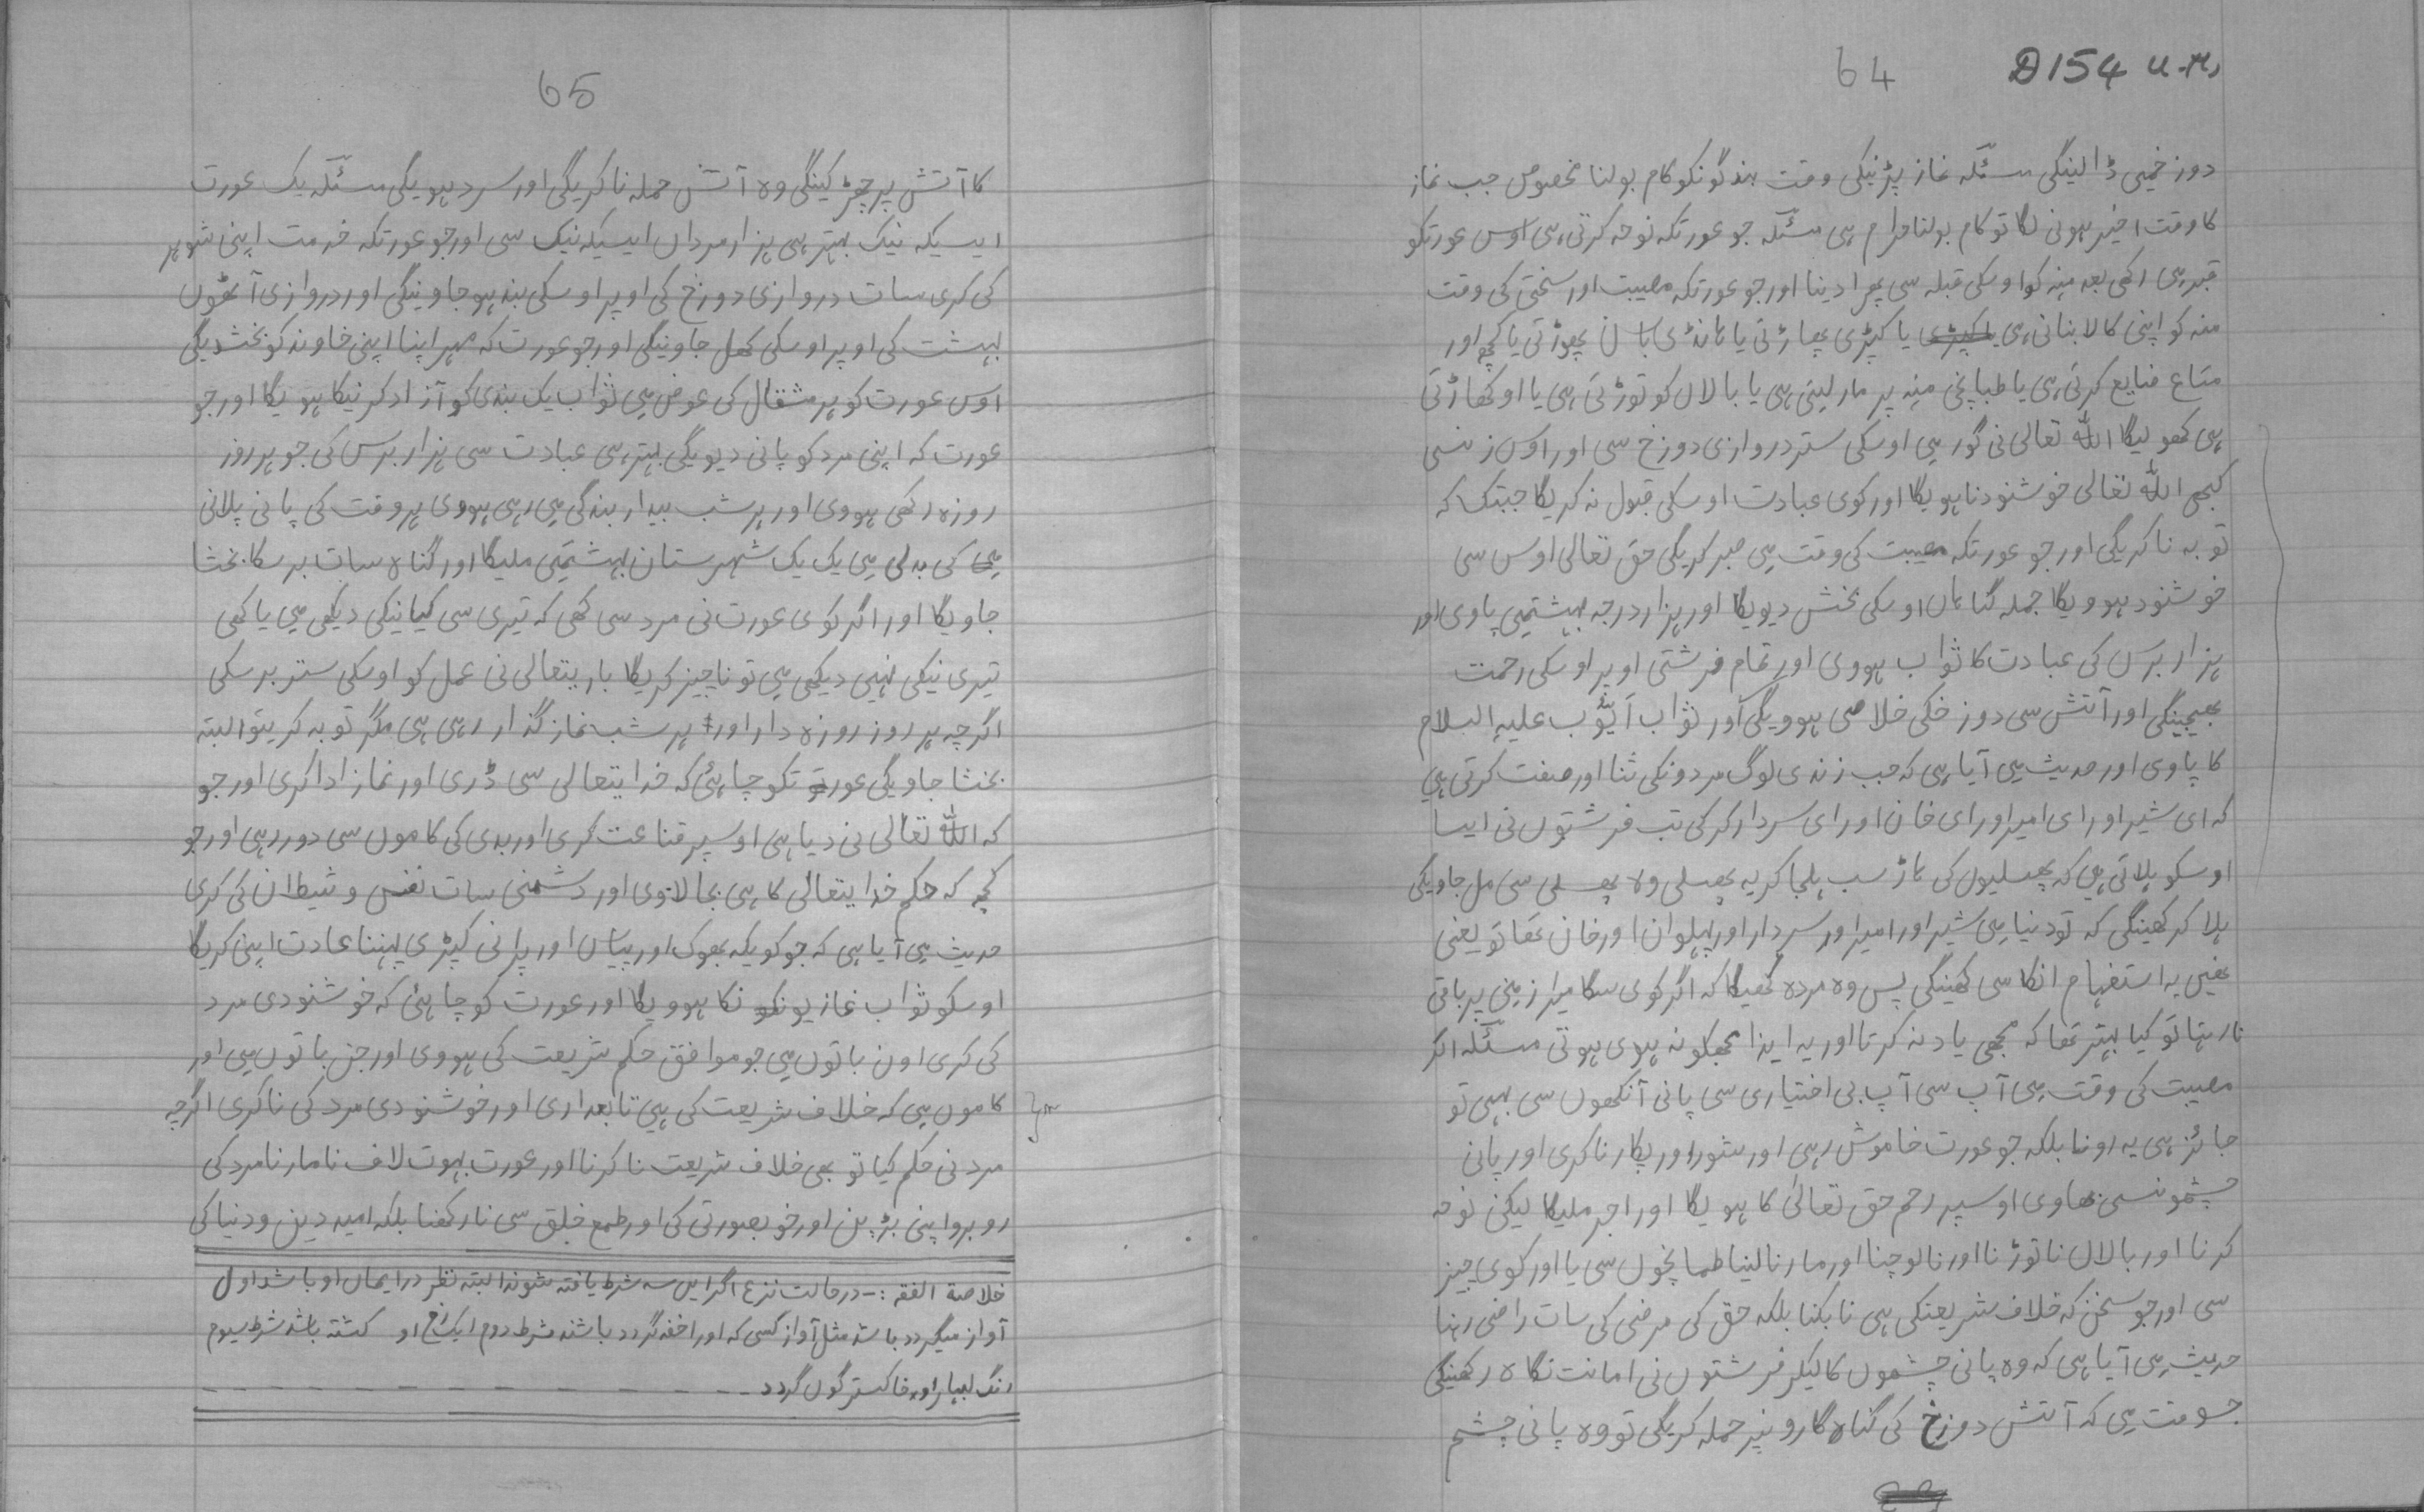 D 154 u.m,
64
دوزخمیں ڈالینگی مسئلہ نماز پڑنیکی وقت بندگونکو کام بولنا مخصوص جب نماز
کا وقت اخیر ہونی لگا تو کام بولنا حرام ہی مسئلہ جو عورتکہ نوحہ کرتی ہی اوس عورتکو
قبر میں رکھی بعد منہ کو اوسکی قبلہ سی پھرا دینا اور جو عورتکہ مصیبت اور سختی کی وقت
منہ کو اپنی کالا بناتی ہی یا کپڑی پھاڑتی یا ہانڈی باسن پھوڑتی یا کچھ اور
متاع ضایع کرتی ہی یا طباپخی منہ پر مار لیتی ہی یا بالاں کو توڑتی ہی یا اوکھاڑتی
ہی کھولیگا اللہ تعالی نی گور میں اوسکی ستر دروازی دوزخ سی اور اوس زنسی
کبھی اللہ تعالی خوشنود نا ہویگا اور کوی عبادت اوسکی قبول نہ کریگا جبتک کہ
توبہ نا کریگی اور جو عورتکہ مصیبت کی وقت میں صبر کریگی حق تعالی اوس سی
خوشنود ہوویگا جملہ گناہاں اوسکی بخش دیویگا اور ہزار درجہ بہشتمیں پاوی اور
ہزار برس کی عبادت کا ثواب ہووی اور تمام فرشتی اوپر اوسکی رحمت
بھیجینگی اور آتش سی دوزخکی خلاصی ہوویگی اور ثواب ایّوب علیہ السلام
کا پاوی اور حدیث میں آیا ہی کہ جب زندی لوگ مردونکی ثنا اور صفت کرتی ہیں
کہ ای شیر اور ای امیر اور ای خان اور ای سردار کر کی تب فرشتوں نی ایسا
اوسکو ہلاتی ہیں کہ پھسلیوں کی ہاڑ سب ہلجا کر یہ پھسلی وہ پھسلی سی مل جاویگی
ہلا کر کھینگی کہ تو دنیا میں شیر اور امیر اور سردار اور پہلوان اور خان تھا تو یعنی
یعنی یہ استفہام انکا سی کھینگی پس وہ مردہ کھیگا کہ اگر کوی سگا میرا زمین پر باقی
نارہتا تو کیا بہتر تھا کہ مجھی یاد نہ کرتا اور یہ ایذا مجھکو نہ ہوی ہوتی مسئلہ اگر
مصیبت کی وقت میں آپ سی آپ بی اختیاری سی پانی آنکھوں سی بہی تو
جائز ہی یہ رونا بلکہ جو عورت خاموش رہی اور شور اور پکار نا کری اور پانی
چشمونسی بہاوی اوسپر رحم حق تعالیٰ کا ہویگا اور اجر ملیگا لیکن نوحہ
کرنا اور بالاں نا توڑنا اور نا لوچنا اور مار نا لینا طماپخوں سی یا اور کوی چیز
سی اور جو سخن کہ خلاف شریعتکی ہی نا بکنا بلکہ حق کی مرضی کی سات راضی رہنا
حدیث میں آیا ہی کہ وہ پانی چشموں کا لیکر فرشتوں نی امانت نگاہ رکھینگی
جسوقت میں کہ آتش دوزخ کی گناہ گارو نپر حملہ کریگی تو وہ پانی چشم
65
کا آتش پر چھڑکینگی وہ آتش حملہ نا کریگی اور سرد ہویگی مسئلہ یک عورت
ایسیکہ نیک بہتر ہی ہزار مرداں ایسیکہ نیک سی اور جو عورتکہ خدمت اپنی شوہر
کی کری سات دروازی دوزخ کی اوپر اوسکی بند ہو جاوینگی اور دروازی آٹھوں
بہشت کی اوپر اوسکی کھل جاوینگی اور جو عورت کہ مہر اپنا اپنی خاوند کو بخشدیگی
اوس عورت کو ہر مثقال کی عوض میں ثواب یک بندی کو آزاد کرنیکا ہویگا اور جو
عورت کہ اپنی مرد کو پانی دیویگی بہتر ہی عبادت سی ہزار برس کی جو ہر روز
روزہ رکھی ہووی اور ہر شب بیدار بندگی میں رہی ہووی ہر وقت کی پانی پلانی
میں کی بدلی میں یک یک شہرستان بہشتمیں ملیگا اور گناہ سات برسکا بخشا
جاویگا اور اگر کوی عورت نی مرد سی کھی کہ تیری سی کیا نیکی دیکھی میں یا کھی
تیری نیکی نہیں دیکھی میں تو ناچیز کریگا باریتعالی نی عمل کو اوسکی ستر برسکی
اگرچہ ہر روز روزہ دار اور ہر شب نماز گذار رہی ہی مگر توبہ کریتو البتہ
بخشا جاویگی عورتکو چاہئی کہ خدایتعالی سی ڈری اور نماز ادا کری اور جو
کہ اللہ تعالی نی دیا ہی اوسپر قناعت کری اور بدی کی کاموں سی دور رہی اور جو
کچھ کہ حکم خدایتعالی کا ہی بجا لاوی اور دشمنی سات نفس و شیطان کی کری
حدیث میں آیا ہی کہ جو کویکہ بھوک اور پیاس اور پرانی کپڑی پہننا عادت اپنی کریگا
اوسکو ثواب غازیونکا ہوویگا اور عورت کو چاہئی کہ خوشنودی مرد
کی کری اون باتوں میں جو موافق حکم شریعت کی ہووی اور جن باتوں میں اور
کاموں میں کہ خلاف شریعت کی ہیں تابعداری اور خوشنودی مرد کی نا کری اگرچہ
مرد نی حکم کیا تو بھی خلاف شریعت نا کرنا اور عورت بہوت لاف نا مارنا مرد کی
روبرو اپنی بڑپن اور خوبصورتی کی اور طمع خلق سی نا رکھنا بلکہ امید دین و دنیا کی
خلاصة الفقہ :- در حالت نزع اگر ایں سہ شرط یافتہ شوند البتہ نظر در ایمان او باشد اول
آواز میگردد باشد مثل آواز کسی کہ اورا خفہ گردد باشند شرط دوم او کشتہ باشد شرط سیوم
رنگ لبہا او خاکستر گوں گردد